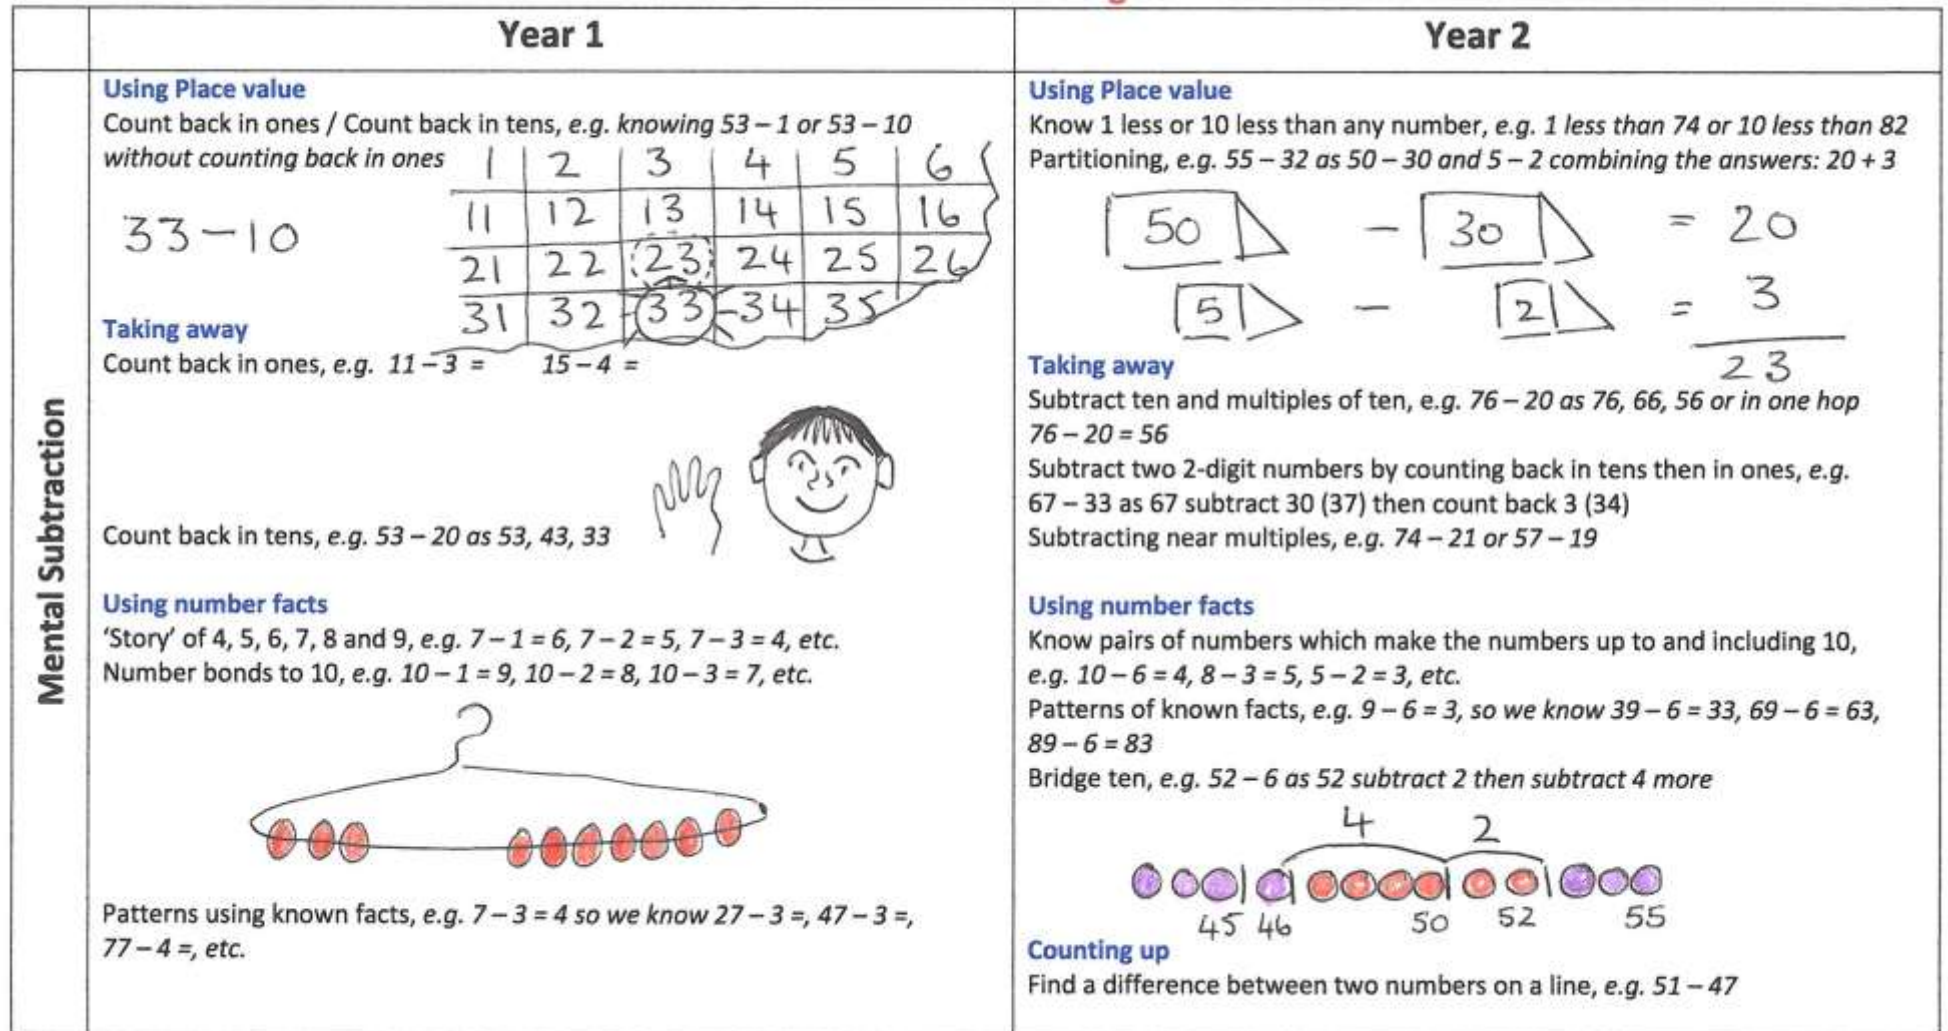 Year 1
Year 2
Mental Subtraction
Using Place value
Count back in ones / Count back in tens, e.g. knowing 53 – 1 or 53 – 10
without counting back in ones
1 2 3 4 5 6
11 12 13 14 15 16
33 – 10
21 22 23 24 25 26
31 32 33 34 35
Taking away
Count back in ones, e.g. 11 – 3 = 15 – 4 =
Count back in tens, e.g. 53 – 20 as 53, 43, 33
Using number facts
‘Story’ of 4, 5, 6, 7, 8 and 9, e.g. 7 – 1 = 6, 7 – 2 = 5, 7 – 3 = 4, etc.
Number bonds to 10, e.g. 10 – 1 = 9, 10 – 2 = 8, 10 – 3 = 7, etc.
Patterns using known facts, e.g. 7 – 3 = 4 so we know 27 – 3 =, 47 – 3 =,
77 – 4 =, etc.
Using Place value
Know 1 less or 10 less than any number, e.g. 1 less than 74 or 10 less than 82
Partitioning, e.g. 55 – 32 as 50 – 30 and 5 – 2 combining the answers: 20 + 3
50 – 30 = 20
5 – 2 = 3
23
Taking away
Subtract ten and multiples of ten, e.g. 76 – 20 as 76, 66, 56 or in one hop
76 – 20 = 56
Subtract two 2-digit numbers by counting back in tens then in ones, e.g.
67 – 33 as 67 subtract 30 (37) then count back 3 (34)
Subtracting near multiples, e.g. 74 – 21 or 57 – 19
Using number facts
Know pairs of numbers which make the numbers up to and including 10,
e.g. 10 – 6 = 4, 8 – 3 = 5, 5 – 2 = 3, etc.
Patterns of known facts, e.g. 9 – 6 = 3, so we know 39 – 6 = 33, 69 – 6 = 63,
89 – 6 = 83
Bridge ten, e.g. 52 – 6 as 52 subtract 2 then subtract 4 more
4 2
45 46 50 52 55
Counting up
Find a difference between two numbers on a line, e.g. 51 – 47